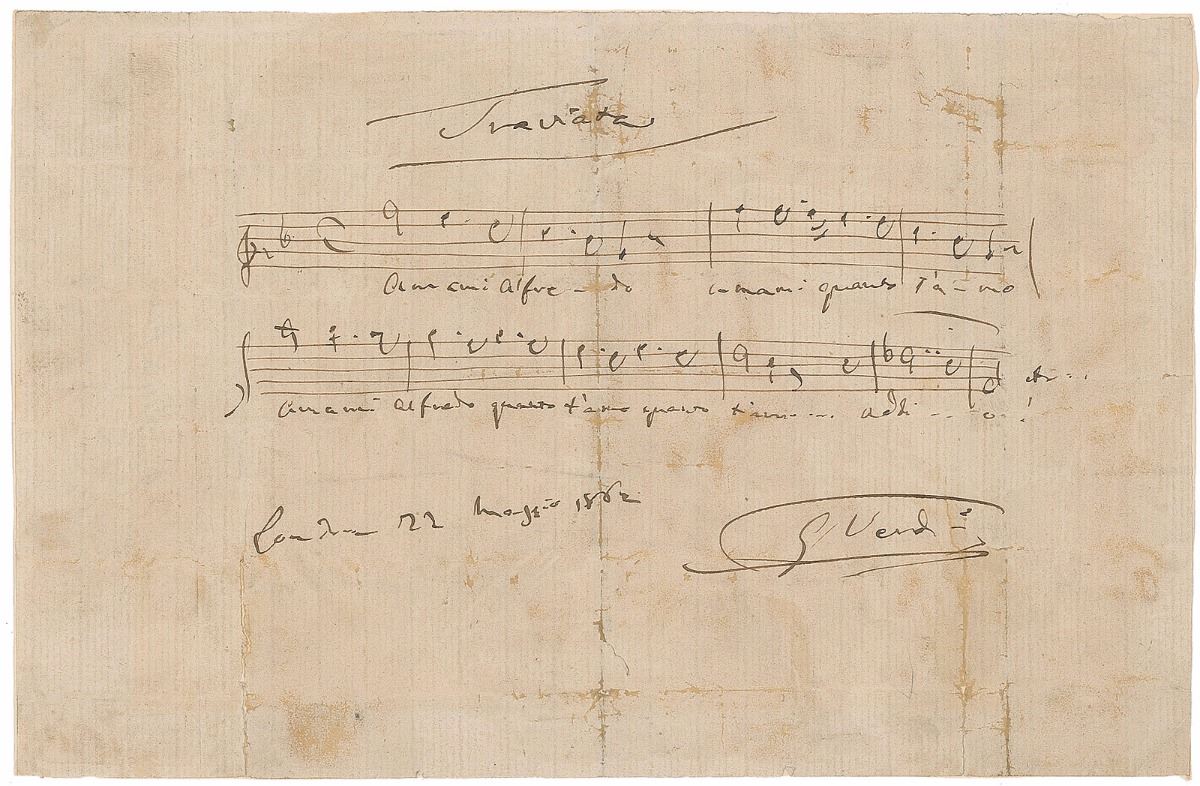 Traviata
Amami Alfre - do amami quanto t'a - mo
Amami Alfredo quanto t'amo quanto t'am.... addi - - o!
etc...
Londra 22 Maggio 1862
G Verdi